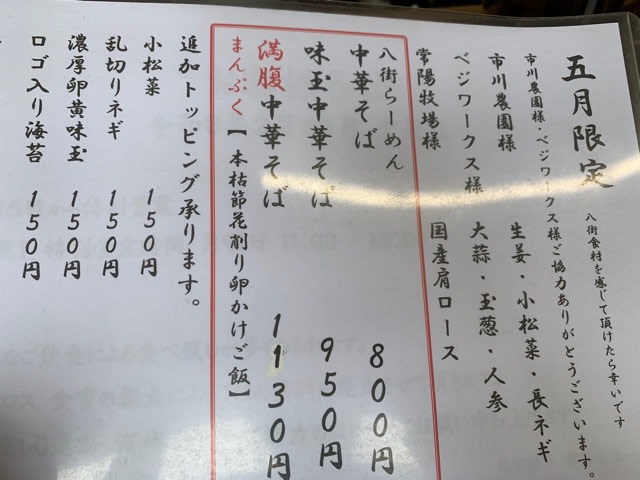 五月限定
八街食材を感じて頂けたら幸いです
市川農園様・ベジワークス様ご協力ありがとうございます。
市川農園様 生姜・小松菜・長ネギ
ベジワークス様 大蒜・玉葱・人参
常陽牧場様 国産肩ロース
八街らーめん
中華そば 800円
味玉中華そば 950円
満腹中華そば 1130円
まんぷく【本枯節花削り卵かけご飯】
追加トッピング承ります。
小松菜 150円
乱切りネギ 150円
濃厚卵黄味玉 150円
ロゴ入り海苔 150円